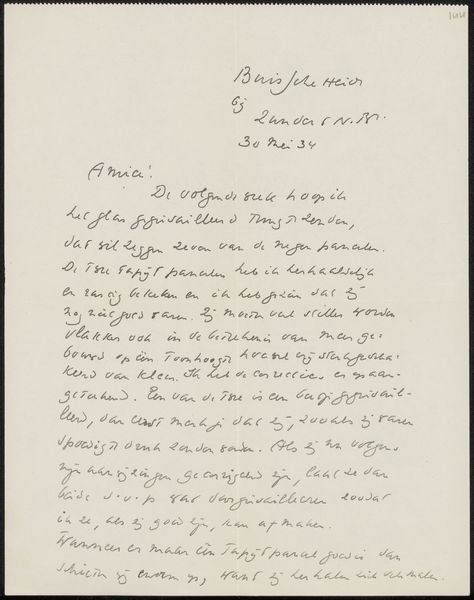 Buissche Heide
bij
Zundert N.Br.
30 Mei 34
Amice!
De volgende week hoop ik
het glas gegrisailleerd terug te zenden,
dat wil zeggen zeven van de negen panelen.
De twee tapijt panelen heb ik herhaaldelijk
en rustig bekeken en ik heb gezien dat zij
nog niet goed waren. Zij moeten veel stiller worden
vlakker ook in de beteekenis van meer ge-
bouwd op één toonhoogte hoewel wij sterk gescha-
keerd van kleur. Ik heb de correcties er op aan-
geteekend. Een van de twee is een beetje gegrisail-
leerd, dan merk je dat zij, zooals zij waren
spoedig te druk zouden worden. Als zij nu volgens
mijn aanwijzingen gecorrigeerd zijn, laat ze dan
beide s.v.p. wat voorgrisailleeren zoodat
ik ze, als zij goed zijn, kan afmaken.
Wanneer er maar één tapijt paneel goed is dan
schieten wij enorm op, want zij herhalen zich